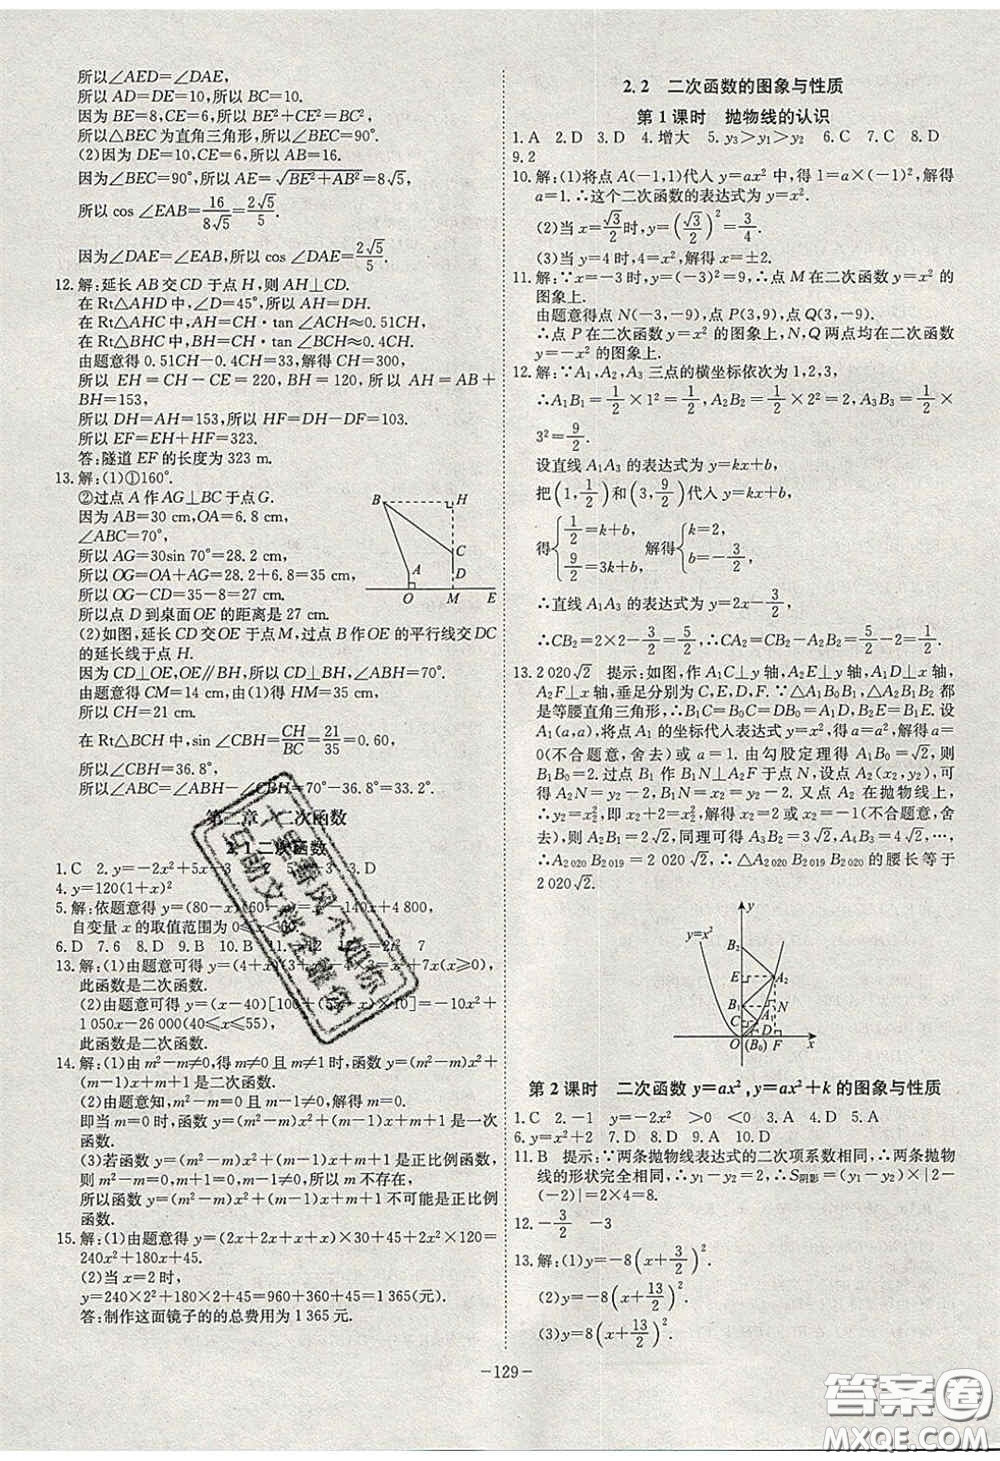 所以∠AED=∠DAE,
所以 AD=DE=10,所以 BC=10.
因为 BE=8,CE=6,所以 BE²+CE²=BC².
所以△BEC 为直角三角形,所以∠BEC=90°.
(2)因为 DE=10,CE=6,所以 AB=16.
因为∠BEC=90°,所以 AE=√(BE²+AB²)=8√5.
所以 cos ∠EAB=16/(8√5)=2√5/5.
因为∠DAE=∠EAB,所以 cos ∠DAE=2√5/5.
12.解:延长 AB 交 CD 于点 H,则 AH⊥CD.
在 Rt△AHD 中,∠D=45°,所以 AH=DH.
在 Rt△AHC 中,AH=CH·tan ∠ACH≈0.51CH.
在 Rt△BHC 中,BH=CH·tan ∠BCH≈0.4CH.
由题意得 0.51CH-0.4CH=33,解得 CH=300,
所以 EH=CH-CE=220,BH=120,所以 AH=AB+
BH=153,
所以 DH=AH=153,所以 HF=DH-DF=103.
所以 EF=EH+HF=323.
答:隧道 EF 的长度为 323 m.
13.解:(1)①160°.
②过点 A 作 AG⊥BC 于点 G.
因为 AB=30 cm,OA=6.8 cm,
∠ABC=70°,
所以 AG=30sin 70°=28.2 cm,
所以 OG=OA+AG=28.2+6.8=35(cm),
所以 OG-CD=35-8=27 cm.
所以点 D 到桌面 OE 的距离是 27 cm.
(2)如图,延长 CD 交 OE 于点 M,过点 B 作 OE 的平行线交 DC
的延长线于点 H.
因为 CD⊥OE,OE∥BH,所以 CD⊥BH,∠ABH=70°.
由题意得 CM=14 cm,由(1)得 HM=35 cm.
所以 CH=21 cm.
在 Rt△BCH 中,sin ∠CBH=CH/BC=21/35=0.60,
所以∠CBH=36.8°,
所以∠ABC=∠ABH-∠CBH=70°-36.8°=33.2°.
B H C A D O M E
第二章 二次函数
2.1 二次函数
1.C 2.y=-2x²+5x-3 3.D
4.y=120(1+x)²
5.解:依题意得 y=(80-x)(60-x)=x²-140x+4 800,
自变量 x 的取值范围为 0<x<60.
6.D 7.6 8.D 9.B 10.B 11. 12. 7
13.解:(1)由题意可得 y=(4+x)(3+x)-4×3=x²+7x(x≥0),
此函数是二次函数.
(2)由题意可得 y=(x-40)[100+(55-x)×10]=-10x²+
1 050x-26 000(40≤x≤55),
此函数是二次函数.
14.解:(1)由 m²-m≠0,得 m≠0 且 m≠1 时,函数 y=(m²-m)x²
+(m-1)x+(m+1)是二次函数.
(2)由题意知,m²-m=0 且 m-1≠0,则 m=0.
即当 m=0 时,函数 y=(m²-m)x²+(m-1)x+(m+1)是一次
函数.
(3)若函数 y=(m²-m)x²+(m-1)x+(m+1)是正比例函数,
则 m²-m=0,m+1=0,且 m-1≠0,所以 m 不存在,
所以函数 y=(m²-m)x²+(m-1)x+(m+1)不可能是正比例
函数.
15.解:(1)由题意得 y=(2x+2x+x+x)×30+45+2x²×120=
240x²+180x+45.
(2)当 x=2 时,
y=240×2²+180×2+45=960+360+45=1 365(元).
答:制作这面镜子的的总费用为 1 365 元.
2.2 二次函数的图象与性质
第 1 课时 抛物线的认识
1.A 2.D 3.D 4.增大 5.y₃>y₁>y₂ 6.C 7.C 8.D
9.2
10.解:(1)将点 A(-1,1)代人 y=ax² 中,得 1=a×(-1)²,解得
a=1.∴这个二次函数的表达式为 y=x².
(2)当 x=√3/2 时,y=(√3/2)²=3/4.
(3)当 y=4 时,4=x²,解得 x=±2.
11.解:∵x=-3 时,y=(-3)²=9,∴点 M 在二次函数 y=x² 的
图象上.
由题意得点 N(-3,-9),点 P(3,9),点 Q(3,-9).
∴点 P 在二次函数 y=x² 的图象上,N,Q 两点均在二次函数
y=-x² 的图象上.
12.解:∵A₁,A₂,A₃ 三点的横坐标依次为 1,2,3,
∴A₁B₁=1/2×1²=1/2,A₂B₂=1/2×2²=2,A₃B₃=1/2×
3²=9/2.
设直线 A₁A₃ 的表达式为 y=kx+b,
把(1,1/2)和(3,9/2)代人 y=kx+b,
得{1/2=k+b, 9/2=3k+b, 解得{k=2, b=-3/2,
∴直线 A₁A₃ 的表达式为 y=2x-3/2,
∴CB₂=2×2-3/2=5/2,∴CA₂=CB₂-A₂B₂=5/2-2=1/2.
13.2 020√2 提示:如图,作 A₁C⊥y 轴,A₂E⊥y 轴,A₁D⊥x 轴,
A₂F⊥x 轴,垂足分别为 C,E,D,F.∵△A₁B₀B₁,△A₂B₁B₂ 都
是等腰直角三角形,∴B₁C=B₀C=DB₀=A₁D,B₂E=B₁E.设
A₁(a,a),将点 A₁ 的坐标代人表达式 y=x²,得 a=a²,解得 a=
0(不合题意,舍去)或 a=1.由勾股定理得 A₁B₀=√2,则
B₁B₀=2.过点 B₁ 作 B₁N⊥A₂F 于点 N.设点 A₂(x₂,y₂),可得
A₂N=y₂-2,B₁N=x₂=y₂-2.又点 A₂ 在抛物线上,
∴y₂=x₂²,即 x₂+2=x₂²,解得 x₂=2或 x₂=-1(不合题意,舍
去),∴A₂B₁=2√2,同理可得 A₃B₂=3√2,A₄B₃=4√2,…,
∴A₂₀₂₀B₂₀₁₉=2 020√2,∴△A₂₀₂₀B₂₀₁₉B₂₀₂₀的腰长等于
2 020√2.
y y=x² B₂ E A₂ B₁ N C A₁ D O (B₀) F x
第 2 课时 二次函数 y=ax²,y=ax²+k 的图象与性质
1.C 2.-1 y=-2x² >0 <0 3.A 4.D 5.A
6.y=x²+2 7.D 8.D 9.A 10.D
11.B 提示:∵两条抛物线表达式的二次项系数相同,∴两条抛物
线的形状完全相同,∴y₁-y₂=-(y₁-y₂),∴S阴影=(y₁-y₂)×|2-
(-2)|=2×4=8.
12.-3/2 -3
13.解:(1)y=-8(x+3/2)².
(2)y=-8(x+13/2)².
(3)y=8(x+13/2)².
-129-
答案圈
MXQE.COM